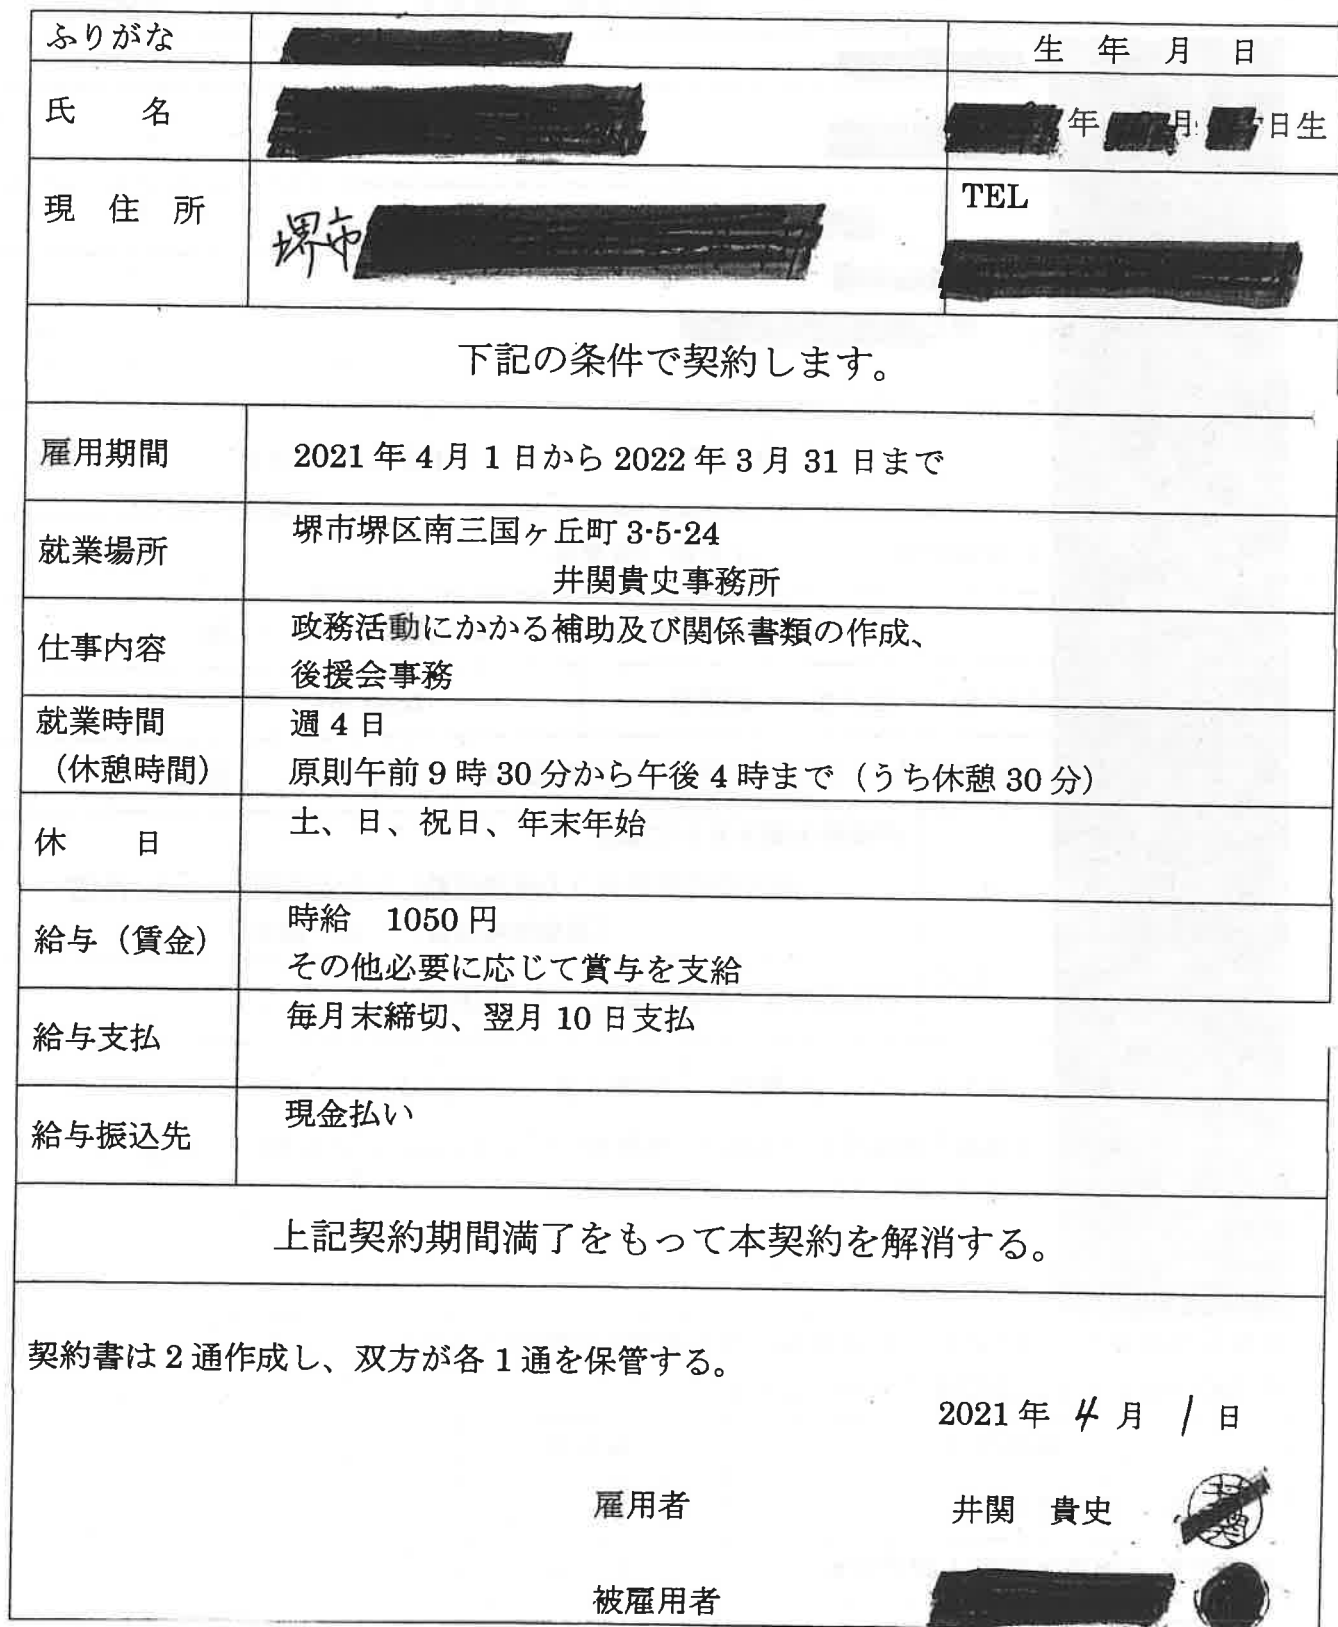 ふりがな
生 年 月 日
氏 名
年 月 日生
現 住 所
堺市
TEL
下記の条件で契約します。
雇用期間
2021年4月1日から2022年3月31日まで
就業場所
堺市堺区南三国ヶ丘町3-5-24
井関貴史事務所
仕事内容
政務活動にかかる補助及び関係書類の作成、
後援会事務
就業時間
（休憩時間）
週4日
原則午前9時30分から午後4時まで（うち休憩30分）
休 日
土、日、祝日、年末年始
給与（賃金）
時給 1050円
その他必要に応じて賞与を支給
給与支払
毎月末締切、翌月10日支払
給与振込先
現金払い
上記契約期間満了をもって本契約を解消する。
契約書は2通作成し、双方が各1通を保管する。
2021年 4 月 1 日
雇用者 井関 貴史
被雇用者